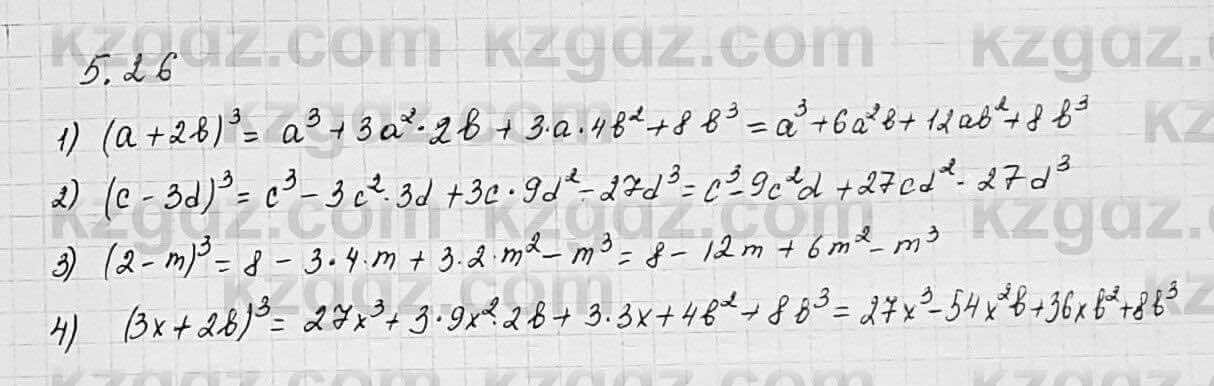 5.26
1) (a + 2b)³ = a³ + 3a²·2b + 3·a·4b² + 8b³ = a³ + 6a²b + 12ab² + 8b³
2) (c - 3d)³ = c³ - 3c²·3d + 3c·9d² - 27d³ = c³ - 9c²d + 27cd² - 27d³
3) (2 - m)³ = 8 - 3·4·m + 3·2·m² - m³ = 8 - 12m + 6m² - m³
4) (3x + 2b)³ = 27x³ + 3·9x²·2b + 3·3x + 4b² + 8b³ = 27x³ - 54x²b + 36xb² + 8b³
kzgdz.com